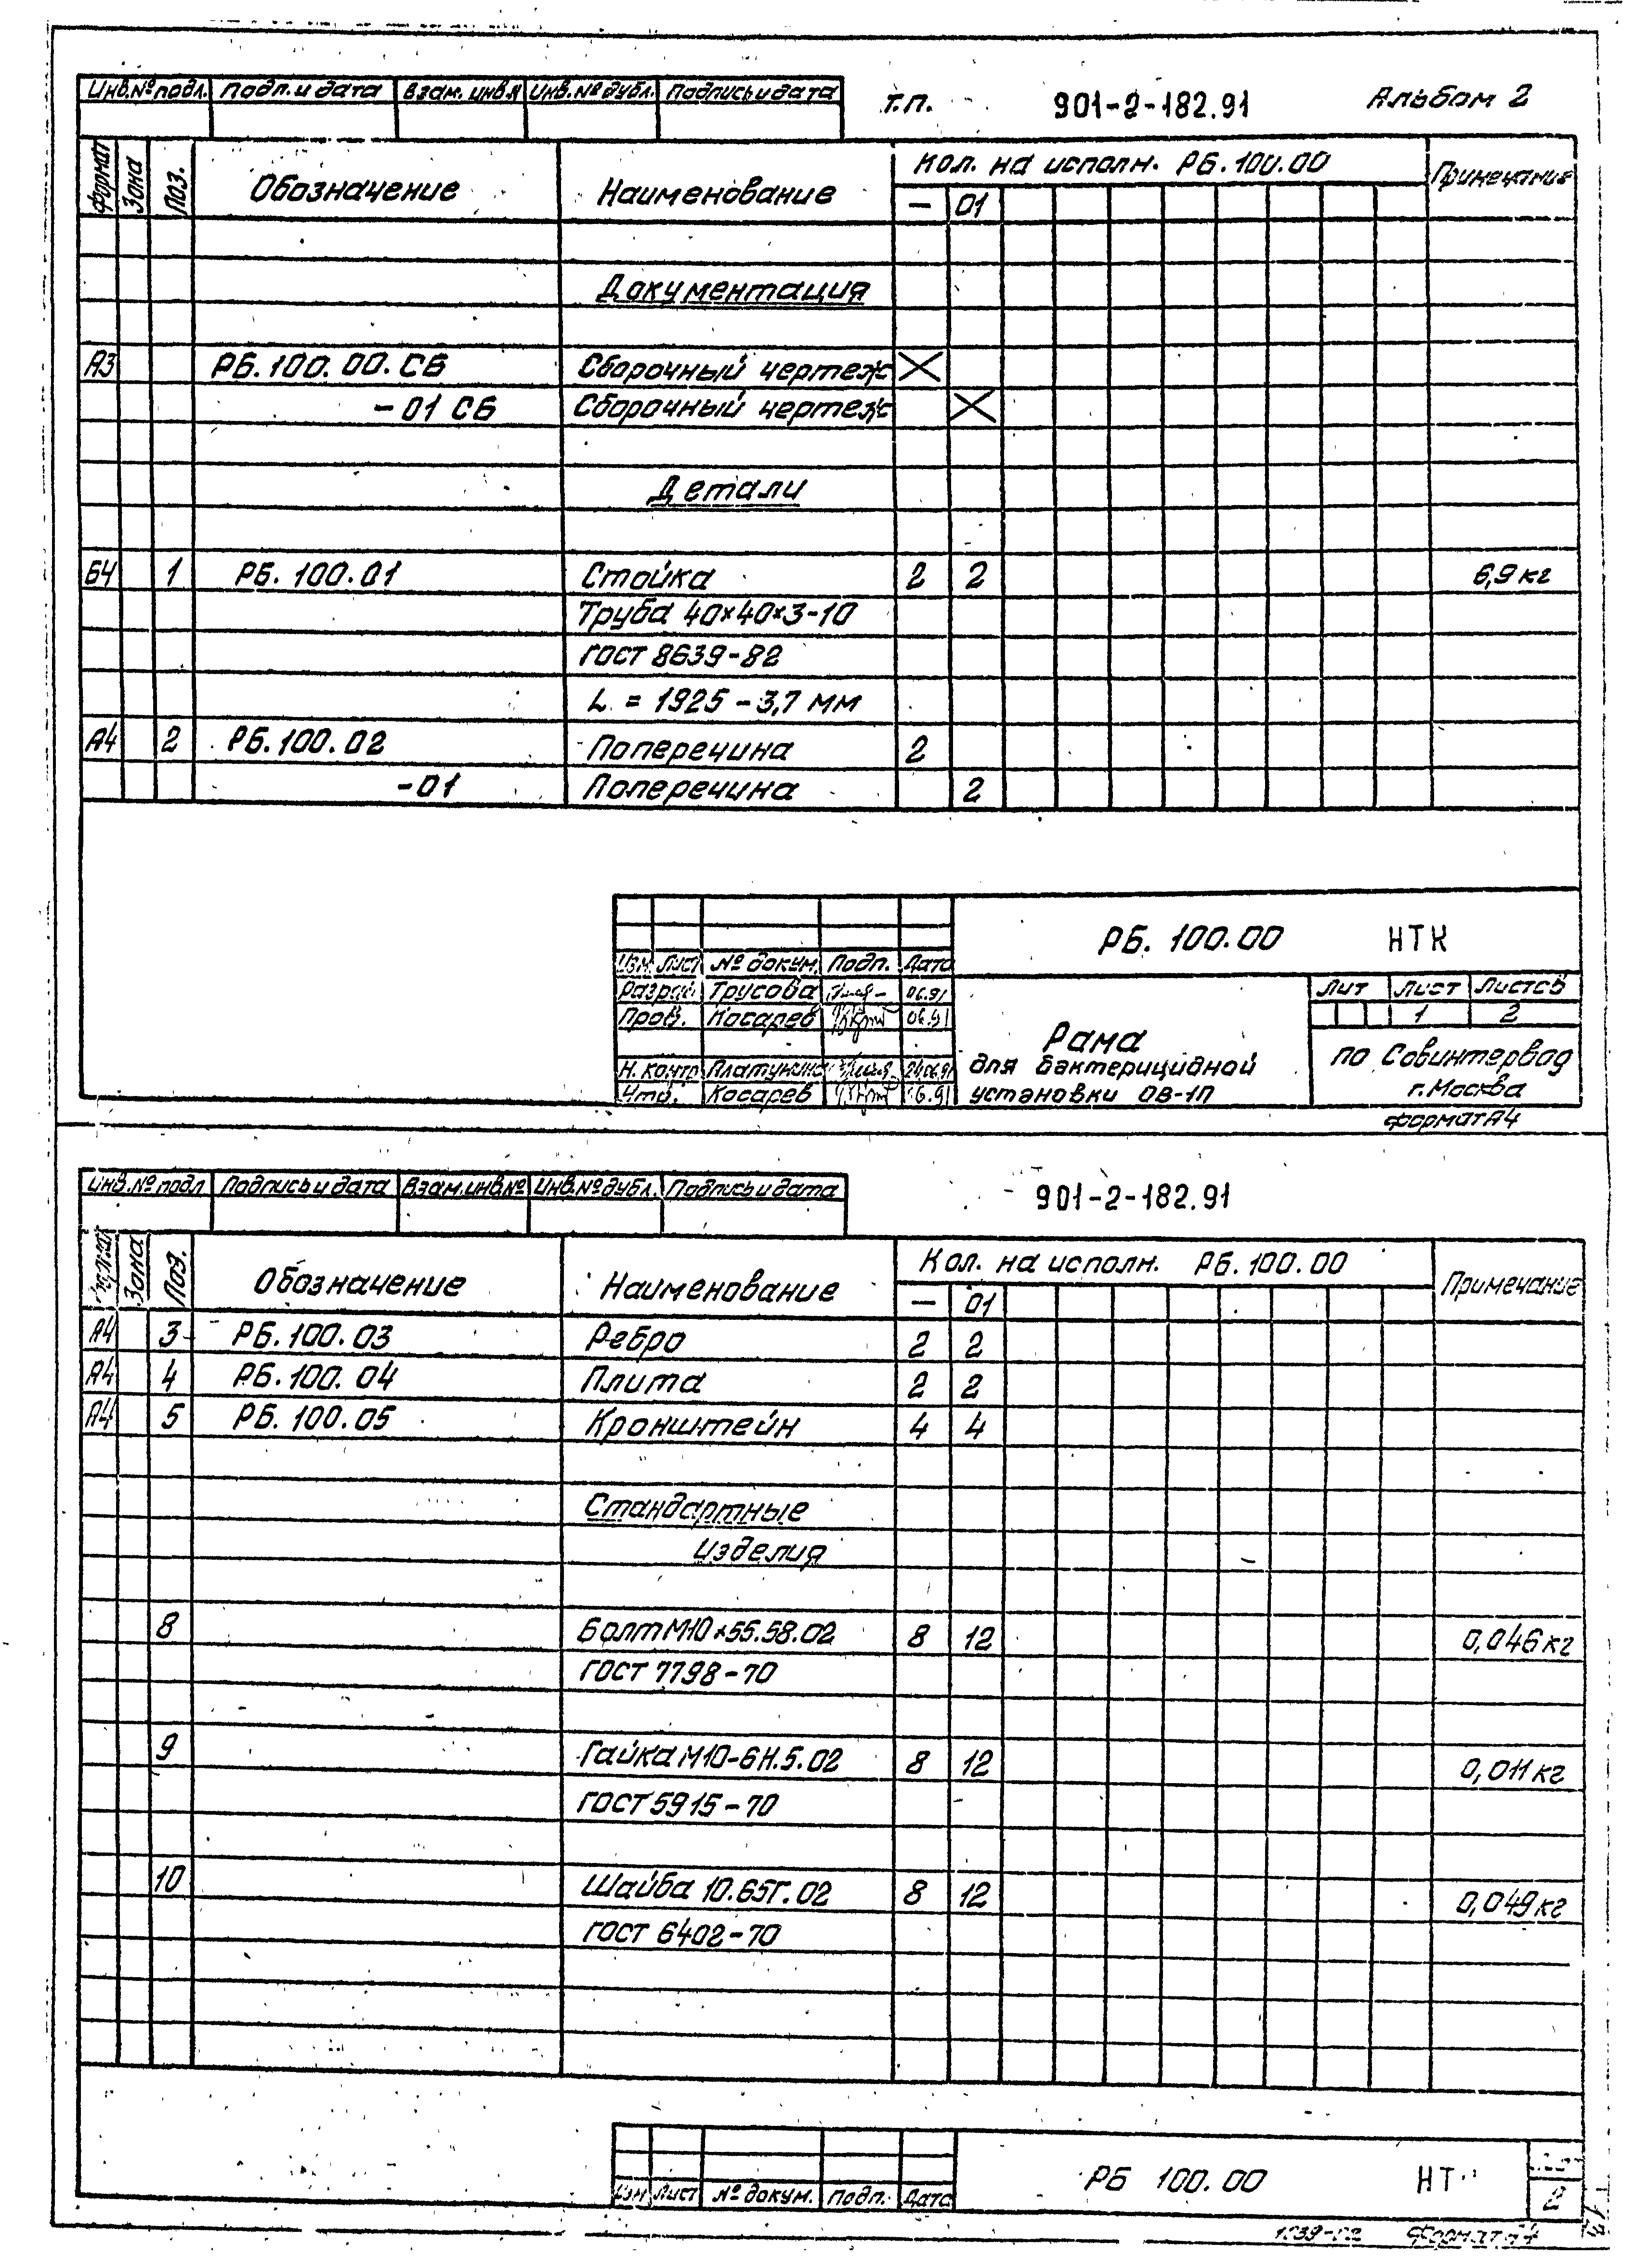 Инв.№ подл. Подп. и дата Взам. инв.№ Инв.№ дубл. Подпись и дата
т.п. 901-2-182.91 Альбом 2
Формат Зона Поз. Обозначение Наименование Кол. на исполн. РБ.100.00 Примечание
— 01
Документация
А3 РБ.100.00.СБ Сборочный чертеж
-01 СБ Сборочный чертеж
Детали
Б4 1 РБ.100.01 Стойка 2 2 6,9 кг
Труба 40×40×3-10
ГОСТ 8639-82
L = 1925 - 3,7 мм
А4 2 РБ.100.02 Поперечина 2
-01 Поперечина 2
РБ. 100.00 НТК
Изм Лист № докум. Подп. Дата
Разраб. Трусова 06.91
Пров. Косарев 06.91
Н. контр. 24.06.91
Утв. Косарев 6.91
Рама
для бактерицидной
установки ОВ-1П
Лит Лист Листов
1 2
ПО Совинтервод
г. Москва
Формат А4
Инв.№ подл Подпись и дата Взам.инв.№ Инв.№ дубл. Подпись и дата
901-2-182.91
Формат Зона Поз. Обозначение Наименование Кол. на исполн. РБ.100.00 Примечание
— 01
А4 3 РБ.100.03 Ребро 2 2
А4 4 РБ.100.04 Плита 2 2
А4 5 РБ.100.05 Кронштейн 4 4
Стандартные
изделия
8 Болт М10×55.58.02 8 12 0,046 кг
ГОСТ 7798-70
9 Гайка М10-6Н.5.02 8 12 0,011 кг
ГОСТ 5915-70
10 Шайба 10.65Г.02 8 12 0,049 кг
ГОСТ 6402-70
РБ 100.00 НТ
Изм Лист № докум. Подп. Дата
2
Формат А4